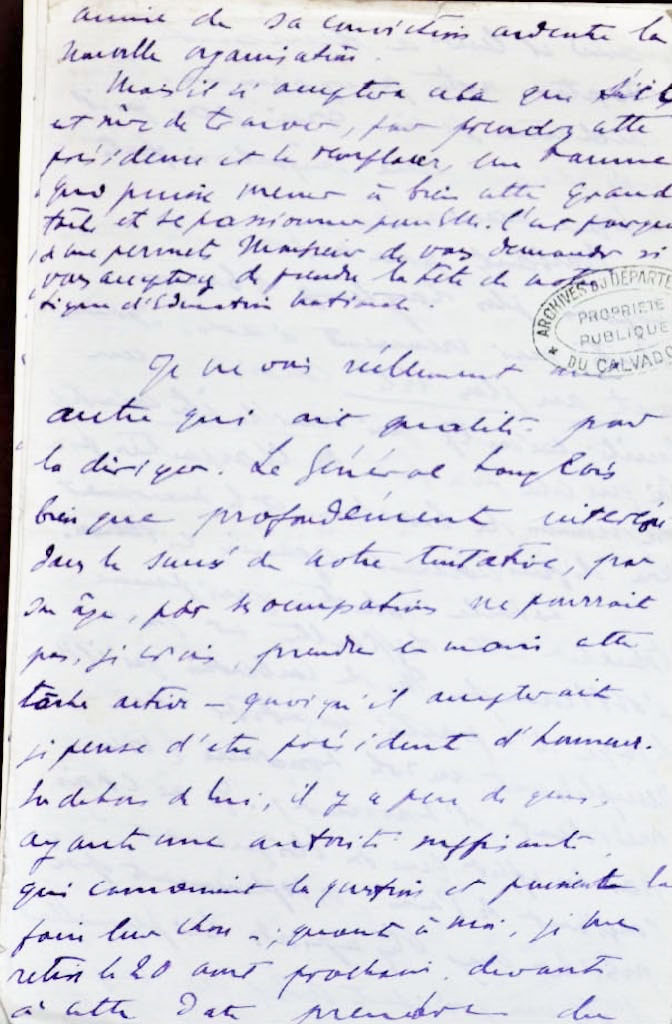 animer de sa conviction ardente la
nouvelle organisation.
Mais il n'acceptera cela que
et de trouver, pour prendre cette
présidence et le remplacer, un homme
qui puisse mener à bien cette grande
tâche et se passionner pour elle. C'est pourquoi
je me permets Monsieur de vous demander si
vous accepteriez de prendre la tête de notre
Ligue d'Education nationale.
ARCHIVES DU DÉPARTE
PROPRIÉTÉ
PUBLIQUE
* DU CALVADOS
Je ne vois réellement aucun
autre qui ait qualité pour
la diriger. Le Général Langlois
bien que profondément intéressé
dans le succès de notre tentative, par
son âge, par ses occupations ne pourrait
pas, je crois, prendre en mains cette
tâche active – quoiqu'il accepterait
je pense d'être président d'honneur.
En dehors de lui, il y a peu de gens,
ayant une autorité suffisante,
qui connaissent la question et puissent la
faire leur chose ; quant à moi, je me
retire le 20 août prochain, devant
à cette date prendre du